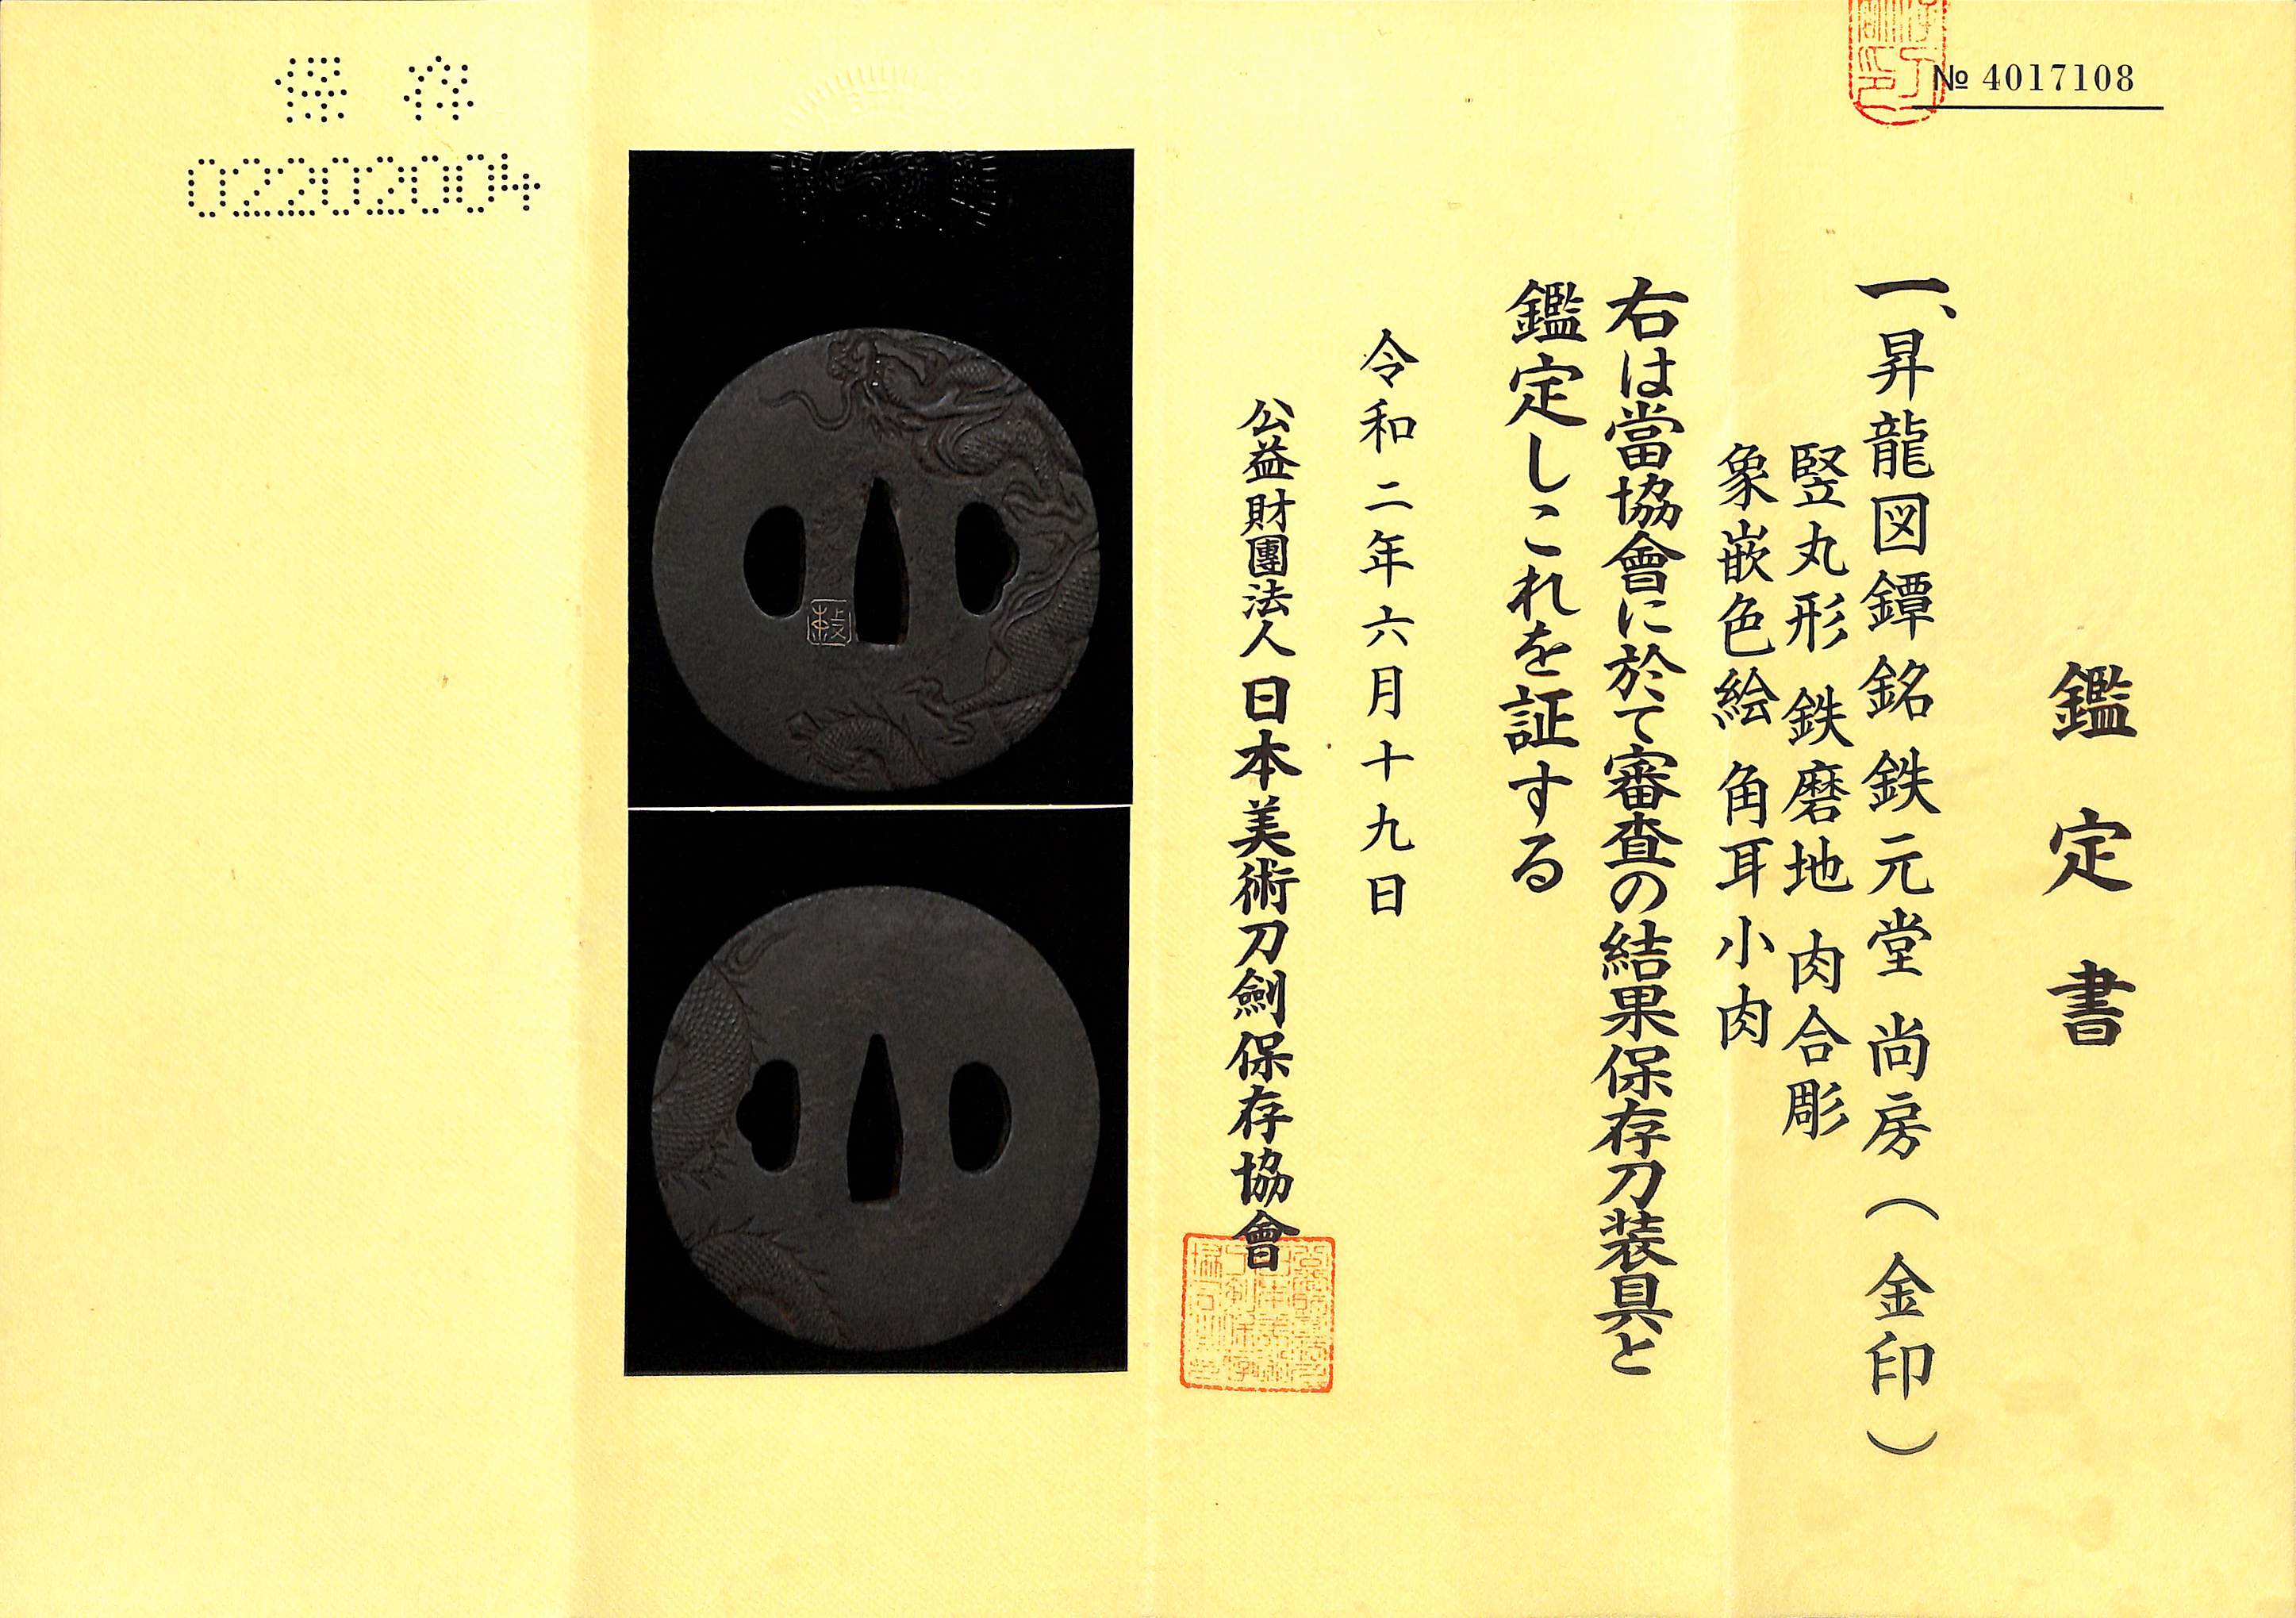 № 4017108
鑑定書
一、昇龍図鐔 銘 鉄元堂 尚房(金印)
竪丸形 鉄磨地 肉合彫
象嵌色絵 角耳小肉
右は當協會に於て審査の結果保存刀装具と
鑑定しこれを証する
令和二年六月十九日
公益財團法人 日本美術刀劍保存協會
保存
02202004